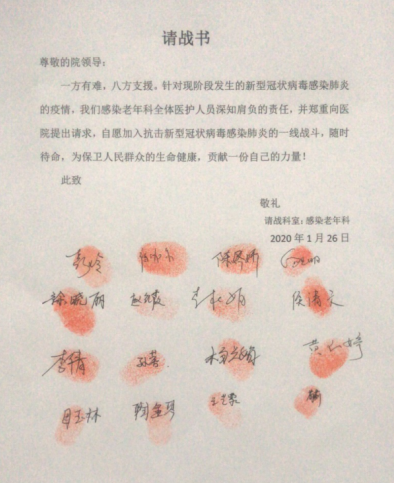 请战书
尊敬的院领导：
一方有难，八方支援，针对现阶段发生的新型冠状病毒感染肺炎
的疫情，我们感染老年科全体医护人员深知肩负的责任，并郑重向医
院提出请求，自愿加入抗击新型冠状病毒感染肺炎的一线战斗，随时
待命，为保卫人民群众的生命健康，贡献一份自己的力量！
此致
敬礼
请战科室：感染老年科
2020 年 1 月 26 日
彭玲
徐晓丽
李倩